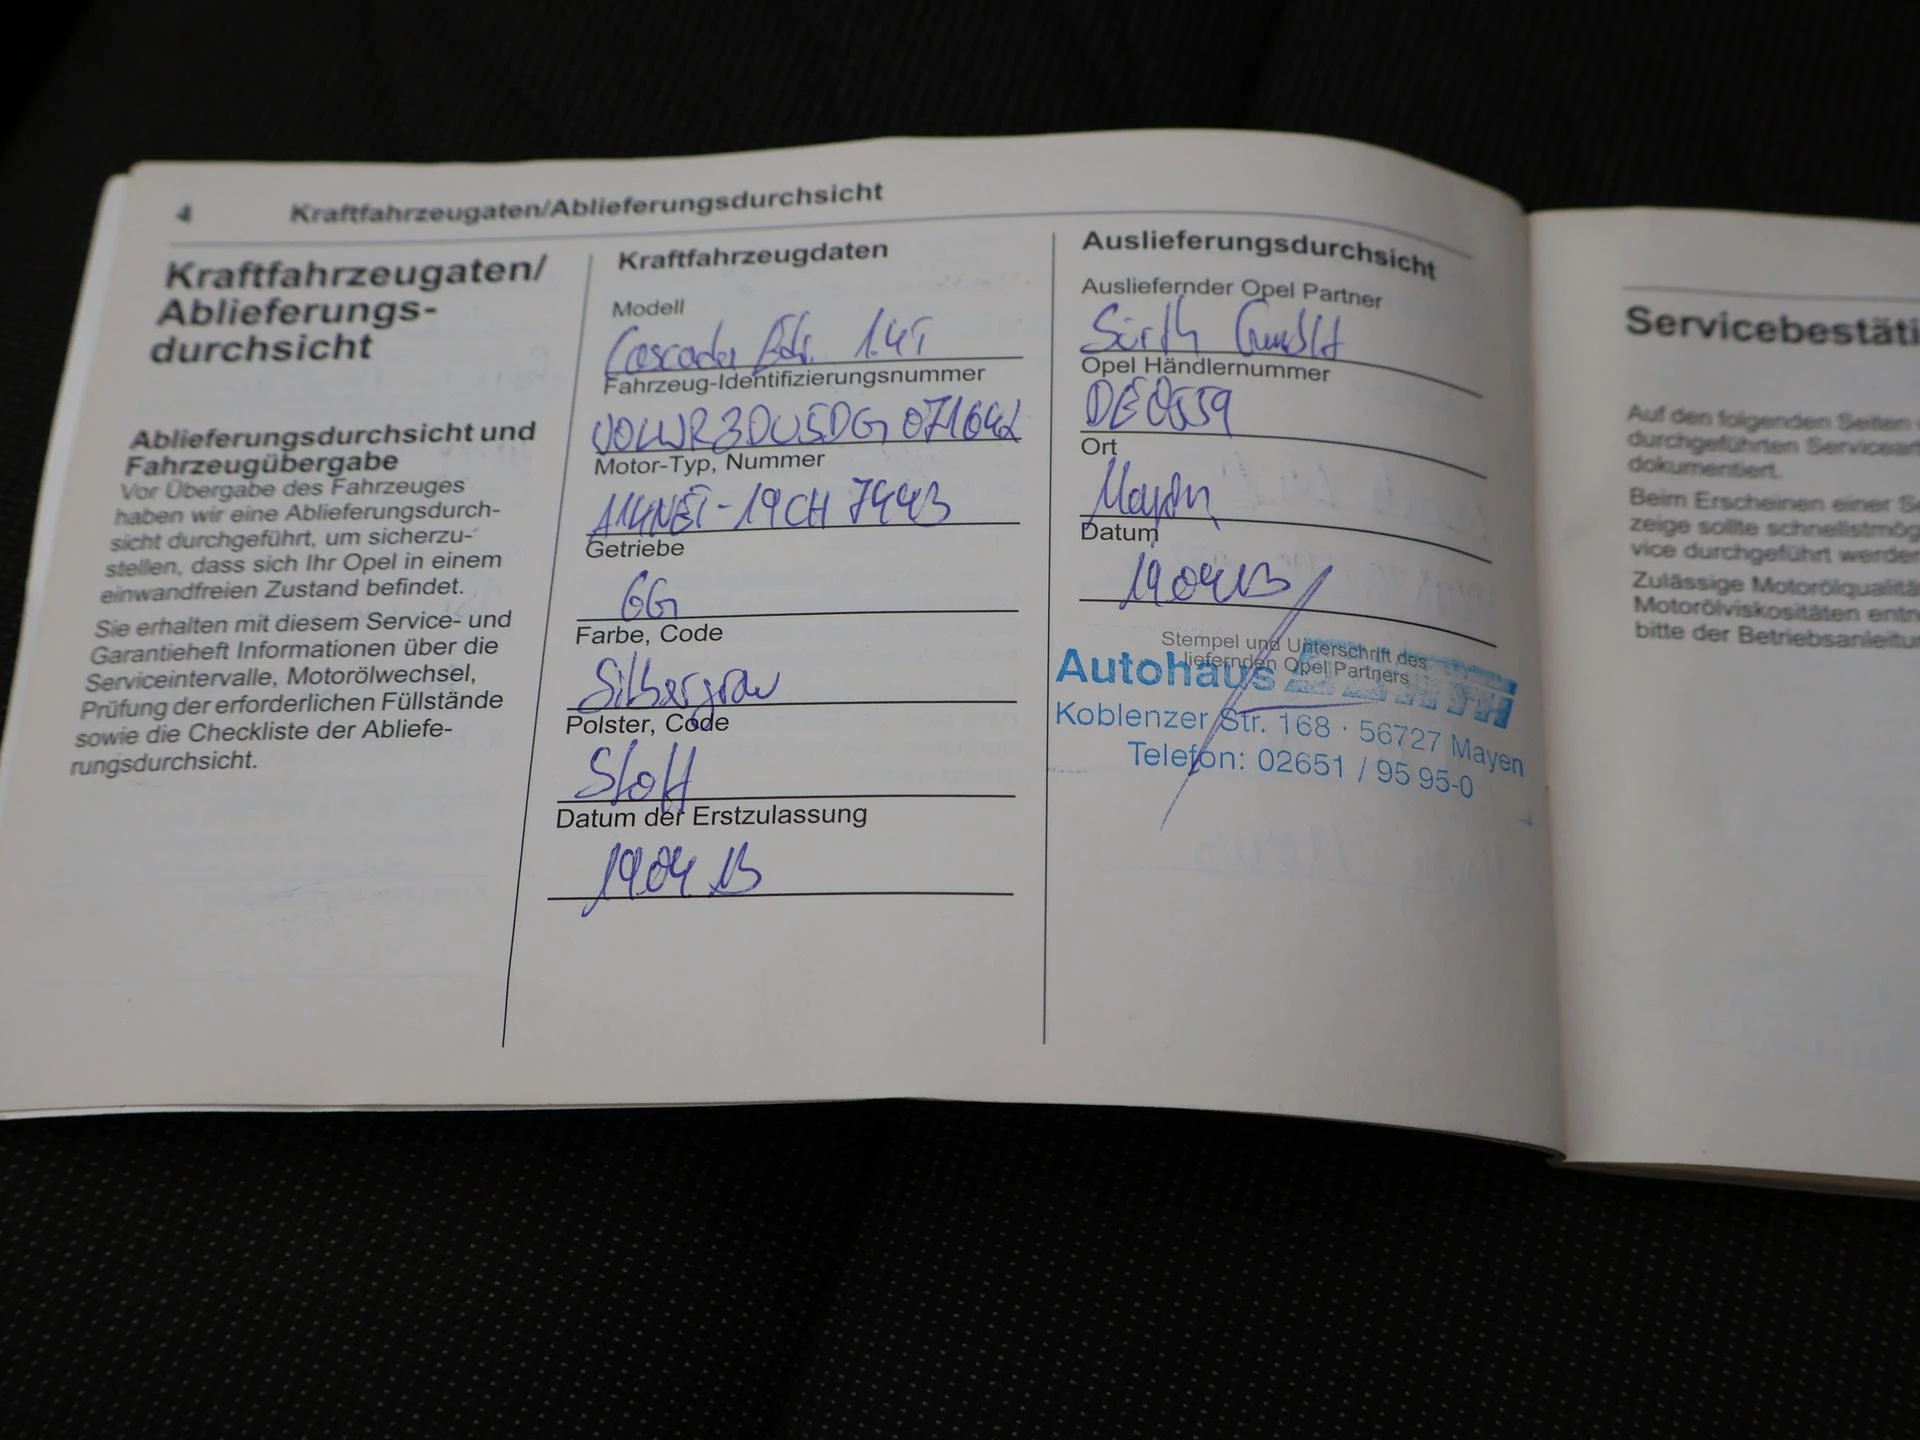 4 Kraftfahrzeugaten/Ablieferungsdurchsicht
Kraftfahrzeugaten/
Ablieferungs-
durchsicht
Ablieferungsdurchsicht und
Fahrzeugübergabe
Vor Übergabe des Fahrzeuges
haben wir eine Ablieferungsdurch-
sicht durchgeführt, um sicherzu-
stellen, dass sich Ihr Opel in einem
einwandfreien Zustand befindet.
Sie erhalten mit diesem Service- und
Garantieheft Informationen über die
Serviceintervalle, Motorölwechsel,
Prüfung der erforderlichen Füllstände
sowie die Checkliste der Abliefe-
rungsdurchsicht.
Kraftfahrzeugdaten
Modell
Cascada Edi. 1.4T
Fahrzeug-Identifizierungsnummer
Motor-Typ, Nummer
A14NET-19CH 7443
Getriebe
6G
Farbe, Code
Silbergrau
Polster, Code
Stoff
Datum der Erstzulassung
19.04.13
Auslieferungsdurchsicht
Ausliefernder Opel Partner
Sürth GmbH
Opel Händlernummer
DE0559
Ort
Mayen
Datum
19.04.13
Stempel und Unterschrift des
liefernden Opel Partners
Autohaus
Koblenzer Str. 168 · 56727 Mayen
Telefon: 02651 / 95 95-0
Servicebestäti
Auf den folgenden Seiten
durchgeführten Servicearb
dokumentiert.
Beim Erscheinen einer Se
zeige sollte schnellstmög
vice durchgeführt werden
Zulässige Motorölqualitä
Motorölviskositäten entn
bitte der Betriebsanleitu